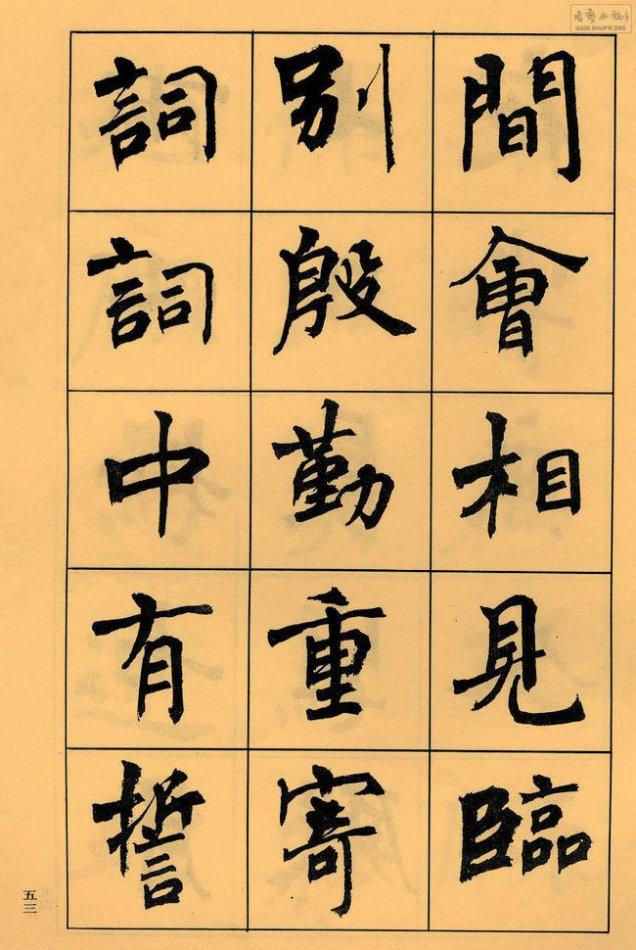 間會相見臨
別殷勤重寄
詞詞中有誓
五三
WWW.SHUFA.ORG